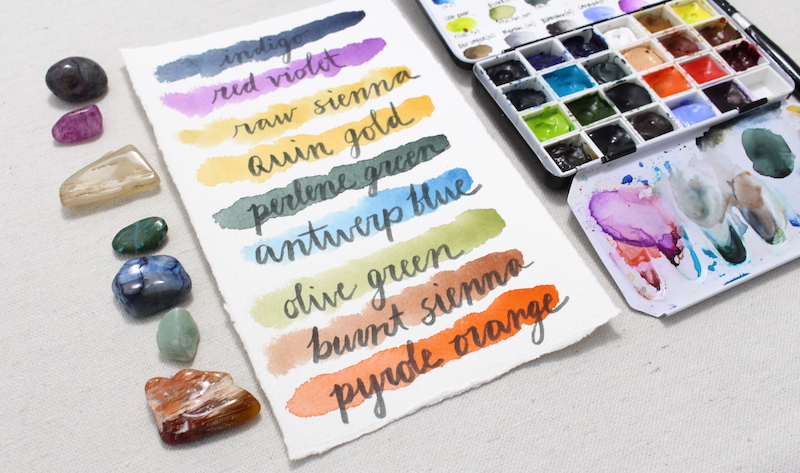 indigo
red violet
raw sienna
quin gold
perlene green
antwerp blue
olive green
burnt sienna
pyrole orange